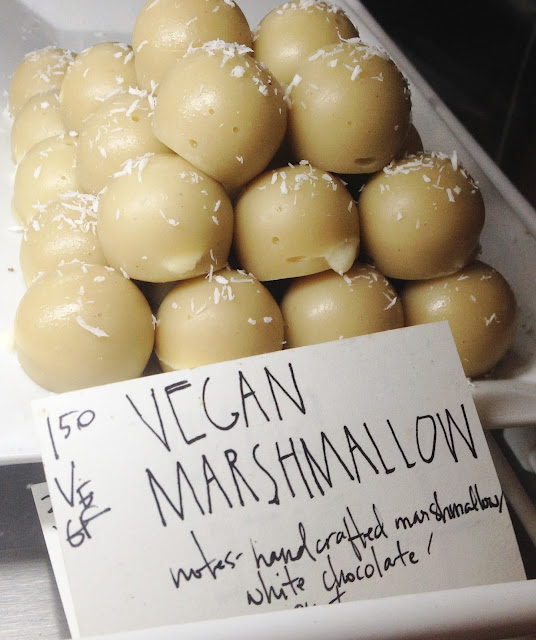 150
VEGAN
MARSHMALLOW
VE
GF
notes- handcrafted marshmallow/
white chocolate/